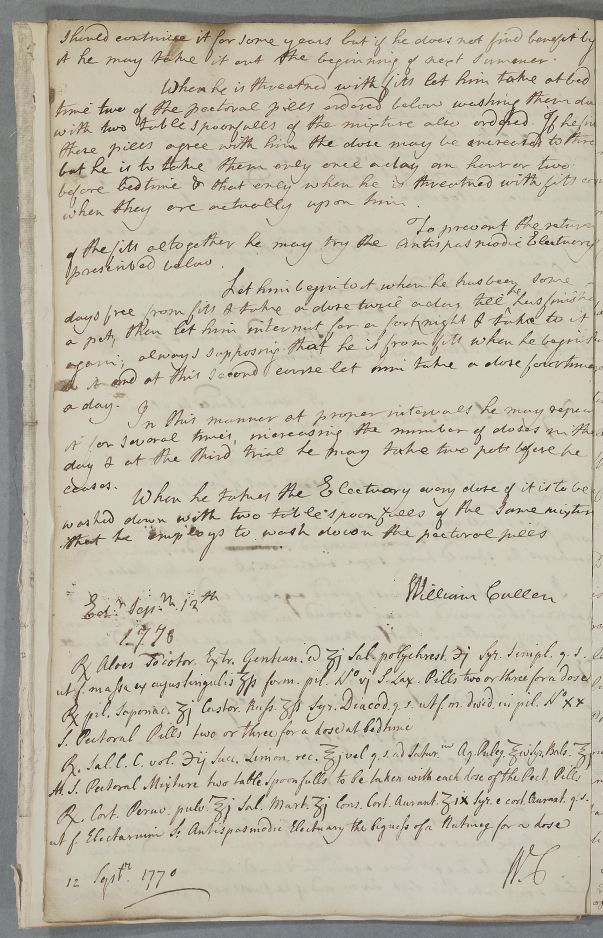 should continue it for some years but if he does not find benefit by
it he may take it out the beginning of next summer.
When he is threatned with fits let him take at bed
time two of the pectoral pills ordered below washing them do
with two table spoonfulls of the mixture also ordered. If he fin
these pills agree with him the dose may be increased to three
but he is to take them only once a day an hour or two
before bedtime & that only when he is threatned with fits or
when they are actually upon him.
To prevent the return
of the fits altogether he may try the Antispasmodic Electuary
prescribed below.
Let him begin to it when he has been some
days free from fits & take a dose twice a day till he has finish'd
a pot, then let him intermit for a fortnight & take to it
again; always supposing that he is from fits when he begins
to it and at this second course let him take a dose four times
a day.
In this manner at proper intervals he may repeat
it for several times, increasing the number of doses in the
day & at the third trial he may take two pots before he
ceases.
When he takes the Electuary every dose of it is to be
washed down with two tablespoonfulls of the same mixture
that he employs to wash down the pectoral pills
William Cullen
Edr. Sepr. 12th
1770
℞ Aloes Socotor. Extr. Gentian. a ʒj Sal. polychrest. ℈j Syr. simpl. q. s.
ut f. massa ex cujus singulis ʒß form. pil. No. vj S. Lax. Pills two or three for a dose
℞ pil. Saponac. ʒj Castor. Russ. ʒß Syr. Diacod. q. s. ut f. m. divid. in pil. No. XX
S. Pectoral Pills two or three for a dose at bedtime
℞. Sal. C. C. vol. ℈ij Succ. Limon. rec. ℥j vel q. s. ad Satur. Aq. Puleg. ℥iv Syr. Bals. ℥j
M. S. Pectoral Mixture two table spoonfulls to be taken with each dose of the Pect. Pills
℞. Cort. Peruv. pulv. ℥j Sal. Mart. ʒj Cons. Cort. Aurant. ℥ix Syr. e cort. Aurant. q. s.
ut f. Electarium S. Antispasmodic Electuary the bigness of a Nutmeg for a dose
W. C.
12 Septr. 1770